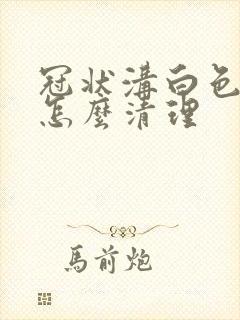 冠狀溝白色
怎麼清理
馬前炮